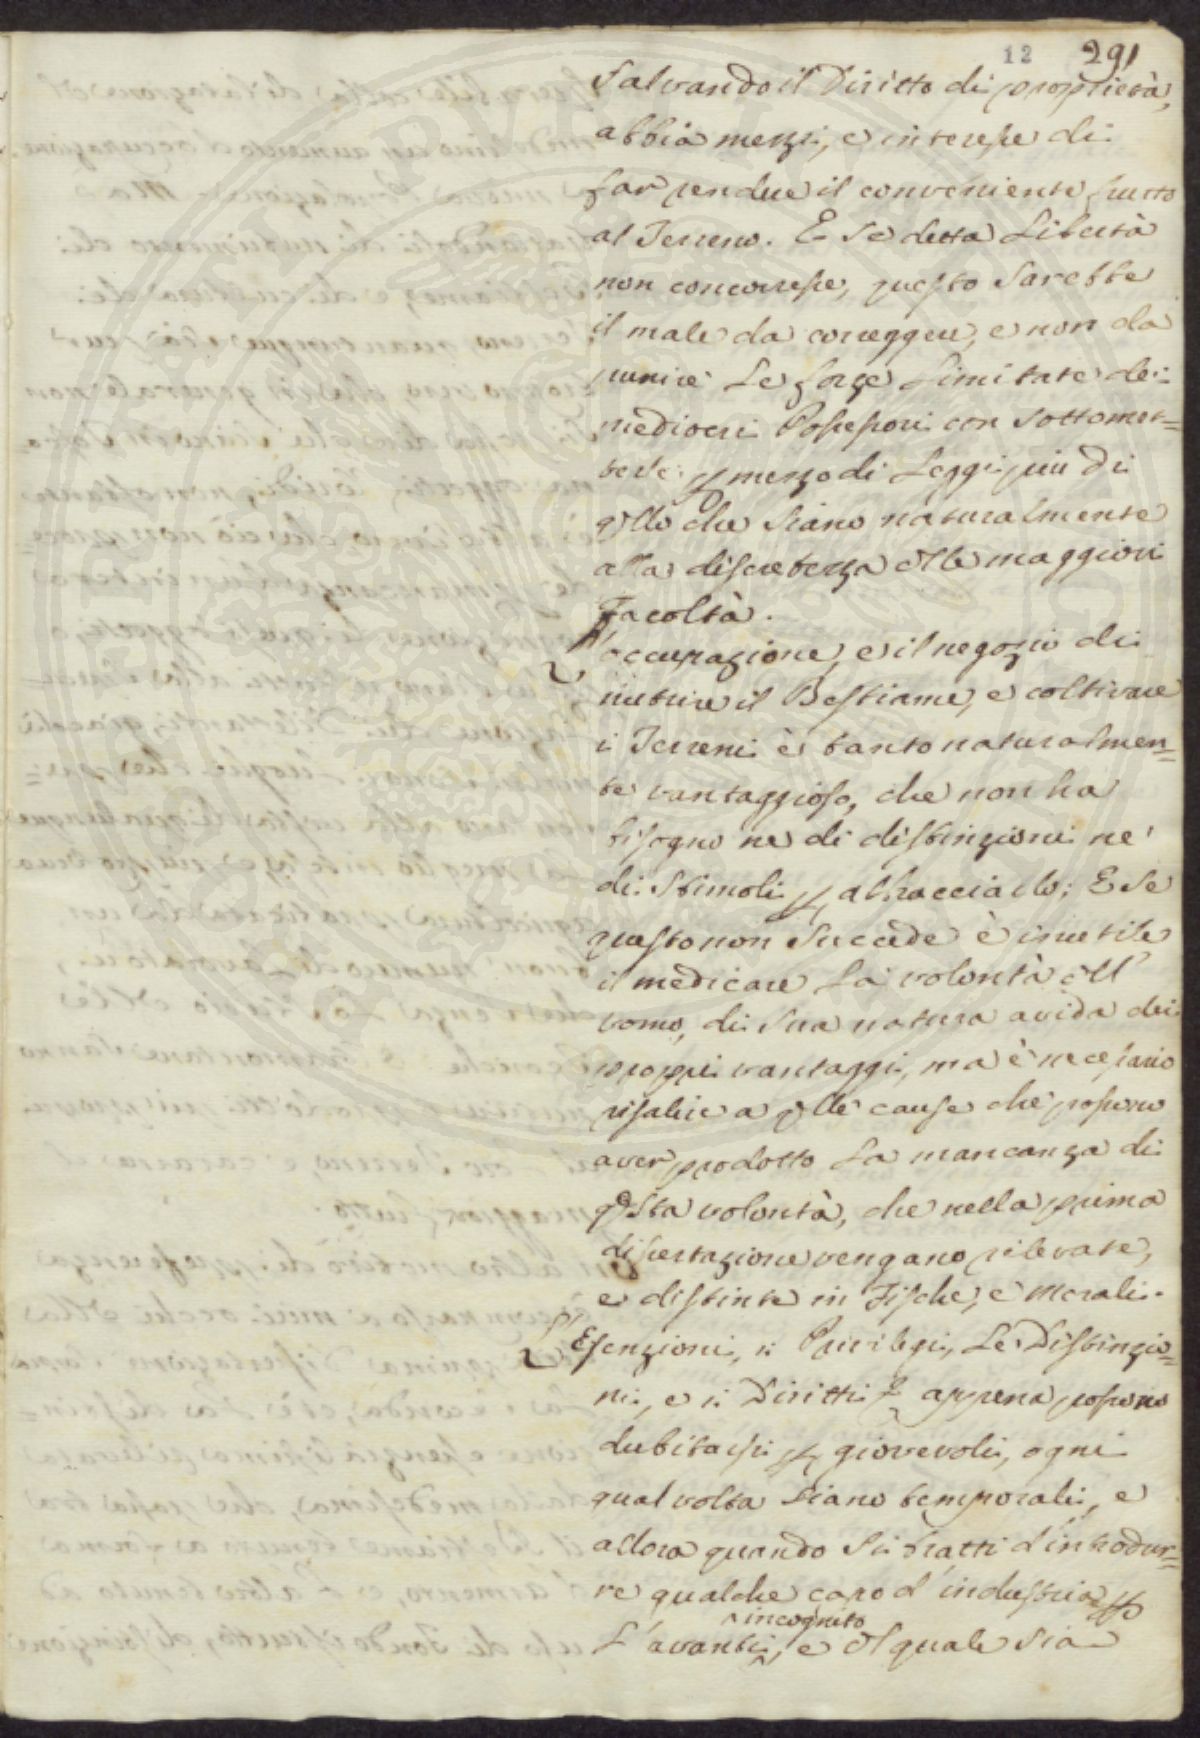 12 291
Salvando il Diritto di proprietà,
abbia mezzi, e interesse di
far rendere il conveniente frutto
al Terreno. E se detta Libertà
non concorresse, questo sarebbe
il male da correggere, e non da
punire Le forze Limitate dei
mediocri Possessori con sottomet=
terle p mezzo di Leggi più di
qllo che siano naturalmente
alla discretezza dlle maggiori
Facoltà.
L'occupazione, e il negozio di
nutrire il Bestiame, e coltivare
i Terreni è tanto naturalmen=
te vantaggioso, che non ha
bisogno ne di distinzioni ne'
di Stimoli p abbracciarlo; E se
questo non succede è inutile
il medicare La volontà dll'
uomo, di sua natura avida dei
proprj vantaggi, ma è necessario
risalire a qlle cause che possono
aver prodotto La mancanza di
qsta volontà, che nella prima
dissertazione vengano rilevate,
e distinte in Fisiche, e Morali.
L'Esenzioni, i Privilegi, Le Distinzio=
ni, e i Diritti appena possono
dubitarsi p giovevoli, ogni
qual volta siano temporali, e
allora quando si tratti d'introdur=
re qualche capo d'industria p
incognito
L'avanti, e dl quale sia